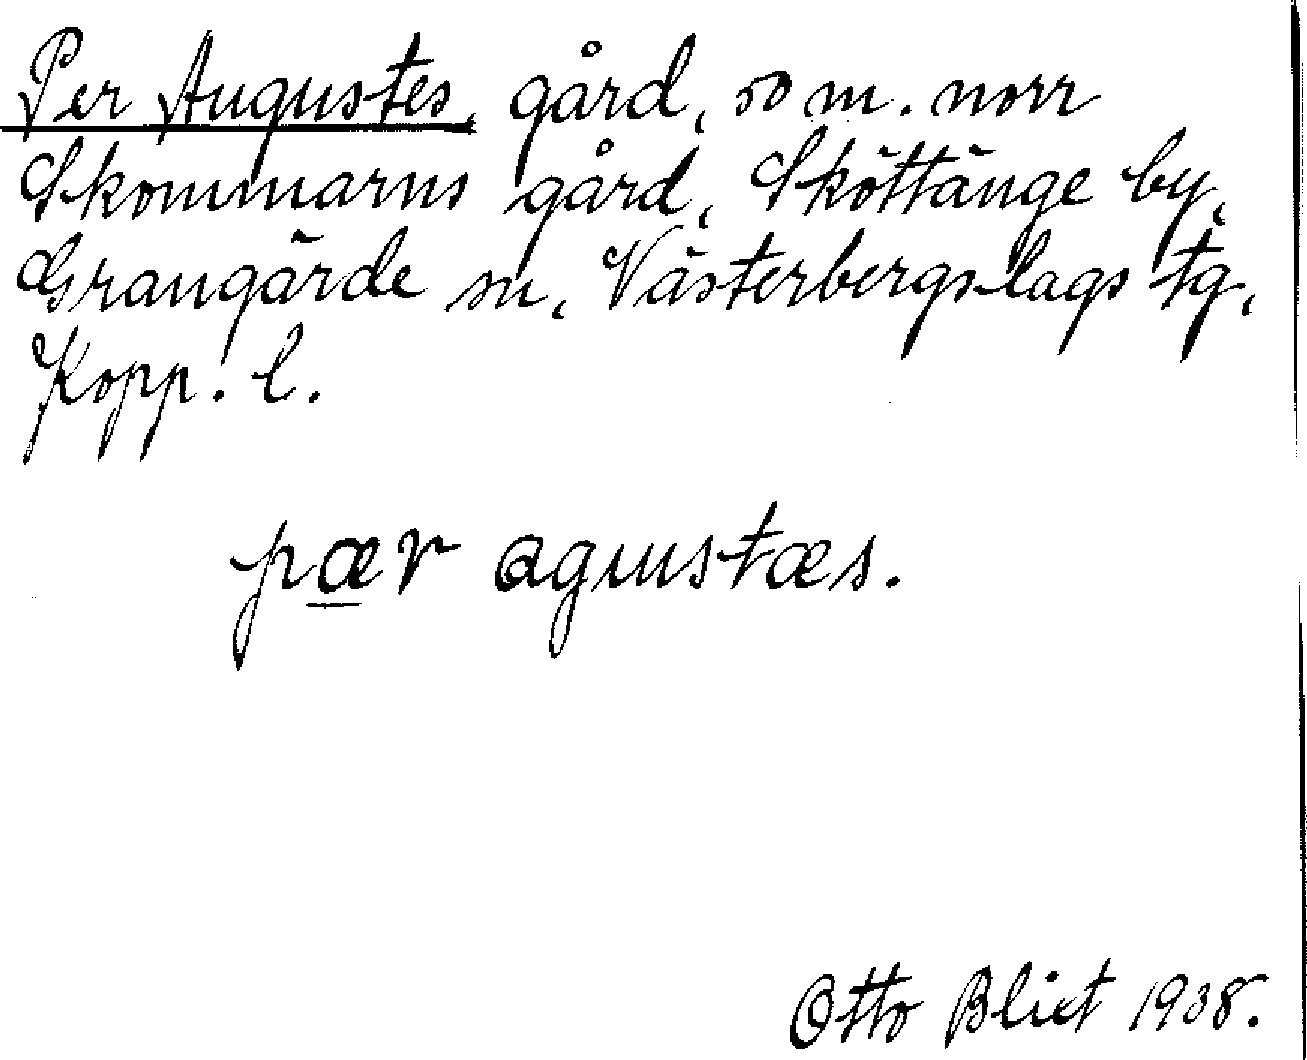 Per Augustes, gård, 50 m. norr
Skommarns gård, Sköttänge by,
Grangärde sn, Västerbergslags tg,
Kopp. l.
pær agustæs.
Otto Blixt 1938.